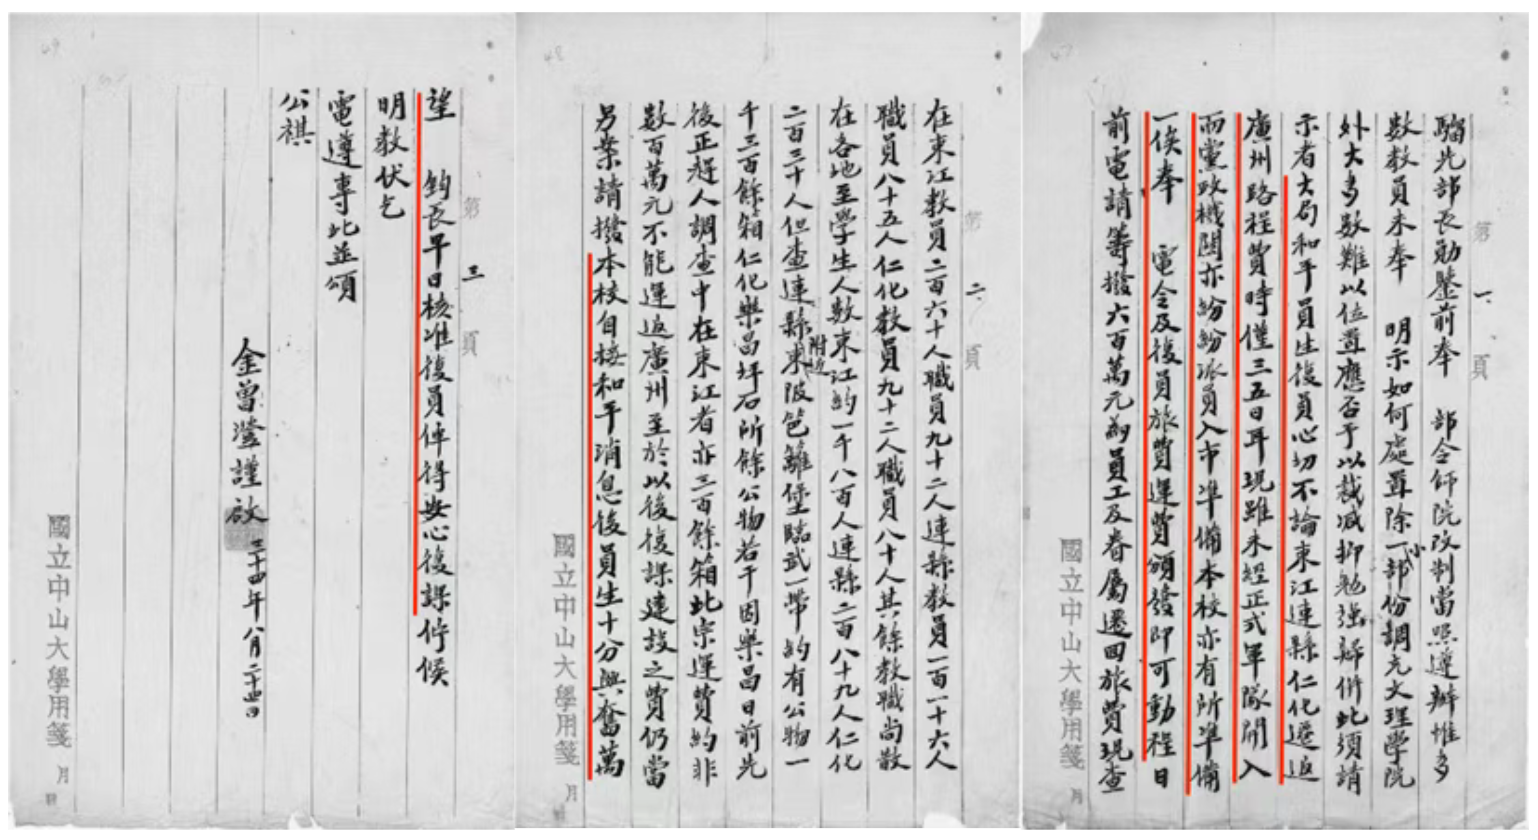 第一頁
騮先部長勛鑒前奉 部令師院改制當照遵辦惟多
數教員未奉 明示如何處置除一小部份調充文理學院
外大多數難以位置應否予以裁減抑勉強辦併此須請
示者大局和平員生復員心切不論東江連縣仁化遷返
廣州路程費時僅三五日耳現雖未經正式軍隊開入
而黨政機關亦紛紛派員入市準備本校亦有所準備
一俟奉 電令及復員旅費運費頒發即可動程日
前電請籌撥六百萬元為員工及眷屬遷回旅費現查
國立中山大學用箋 月
第二頁
在東江教員二百六十人職員九十二人連縣教員一百一十六人
職員八十五人仁化教員九十二人職員八十人其餘教職尚散
在各地至學生人數東江約一千八百人連縣二百八十九人仁化
二百三十人但查連縣東陂附近笆籬堡臨武一帶約有公物一
千三百餘箱仁化樂昌坪石所餘公物若干因樂昌日前先
後正趕人調查中在東江者亦三百餘箱此宗運費約非
數百萬元不能運返廣州至於以後復課建設之費仍當
另案請撥本校自接和平消息後員生十分興奮萬
國立中山大學用箋 月
第三頁
望 鈞長早日核准復員俾得安心復課佇候
明教伏乞
電遵專此並頌
公祺
金曾澄謹啟
三十四年八月二十四日
國立中山大學用箋 月